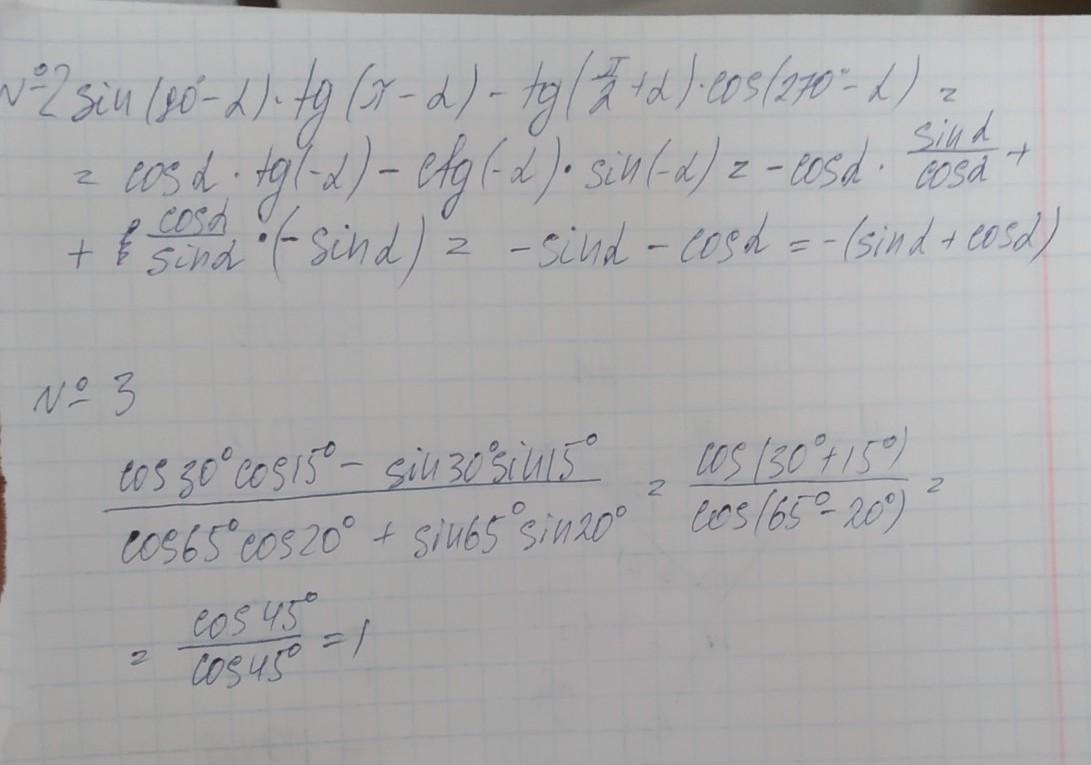 №2 sin(90°-α)·tg(π-α)-tg(π/2+α)·cos(270°-α) =
= cosα·tg(-α)-ctg(-α)·sin(-α) = -cosα·sinα/cosα +
+ cosα/sinα·(-sinα) = -sinα-cosα = -(sinα+cosα)
№ 3
cos30°cos15°- sin30°sin15° / cos65°cos20° + sin65°sin20° = cos(30°+15°) / cos(65°-20°) =
= cos45° / cos45° = 1